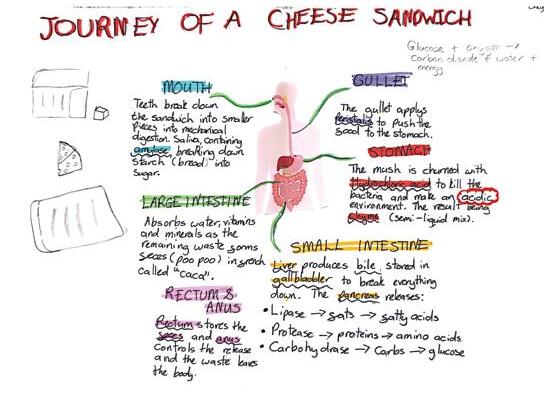 JOURNEY OF A CHEESE SANDWICH
Glucose + oxygen →
Carbon dioxide + water +
energy
MOUTH
Teeth break down
the sandwich into smaller
pieces into mechanical
digestion. Saliva, contining
amylase breaking down
starch (bread) into
sugar.
GULLET
The gullet applys
Peristalis to push the
food to the stomach.
STOMACH
The mush is churned with
Hydrocloric acid to kill the
bacteria and make an acidic
environment. The result being
chyme (semi-liquid mix).
LARGE INTESTINE
Absorbs water, vitamins
and minerals as the
remaining waste forms
feces (poo poo) in french
called "caca".
SMALL INTESTINE
Liver produces bile, stored in
gallbladder to break everything
down. The pancreas releases:
• Lipase → fats → fatty acids
• Protease → proteins → amino acids
• Carbohydrase → carbs → glucose
RECTUM &
ANUS
Rectum stores the
feces and anus
controls the release
and the waste leaves
the body.